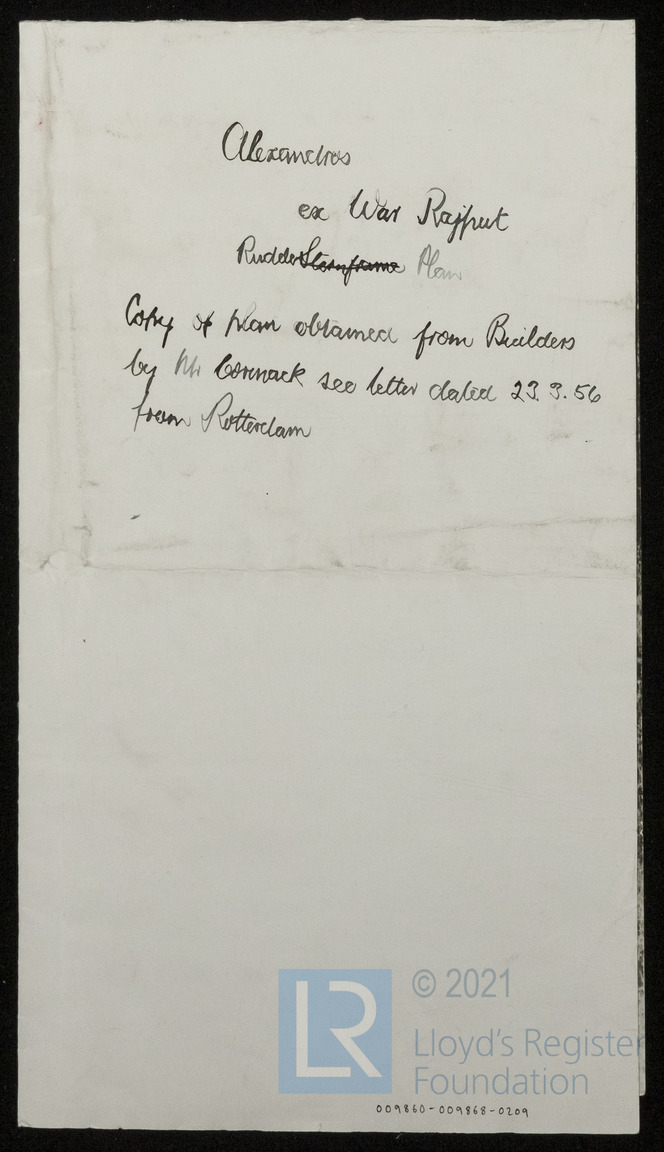 Alexandros
ex War Rajput
Rudder Sternframe Plan
Copy of plan obtained from Builders
by Mr Cormack see letter dated 23.3.56
from Rotterdam
LR
© 2021
Lloyd's Register
Foundation
009860-009868-0209